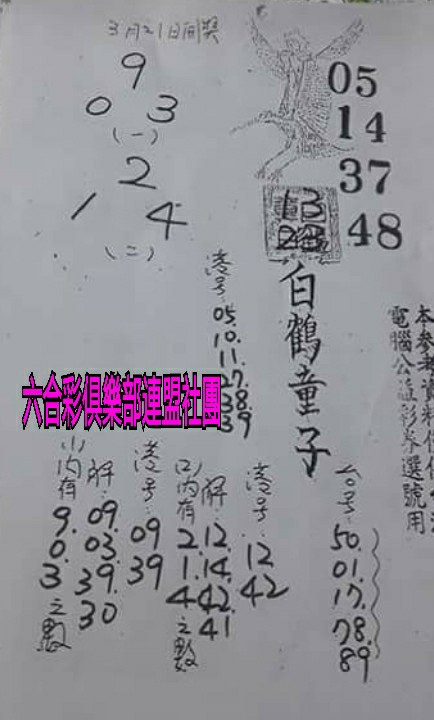 3月21日開獎
9
0 3
(一)
2
1 4
(二)
05
14
37
48
13
23
白鶴童子
港号
05.
10.
11.
27.
38.
39
六合彩俱樂部連盟社團
本参考資料仅供
電腦公益彩券選號用
(1)內有
9.
0.
3
之數
解
09.
03.
39.
30
港号
09
39
(2)內有
2.
1.
4
之數
解
12.
14.
42.
41
港号
12
42
台号
50.
01.
17.
78.
89